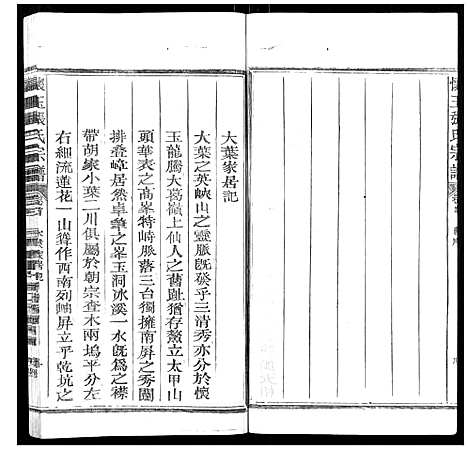 懷玉張氏宗譜
大葉家居記
大葉之英峽山之靈脈旣發乎三清秀亦分於懷
玉龍騰大葛嶺上仙人之舊趾猶存鰲立太甲山
頭華表之高峯特峙脈落三台獨擁南屏之秀圍
排叠嶂居然卓筆之峯玉洞冰溪一水旣爲之襟
帶胡家小葉二川俱屬於朝宗查木兩塢平分左
右細流蓮花一山聳作西南列嶂昇立乎乾坑之
懷玉張氏宗譜